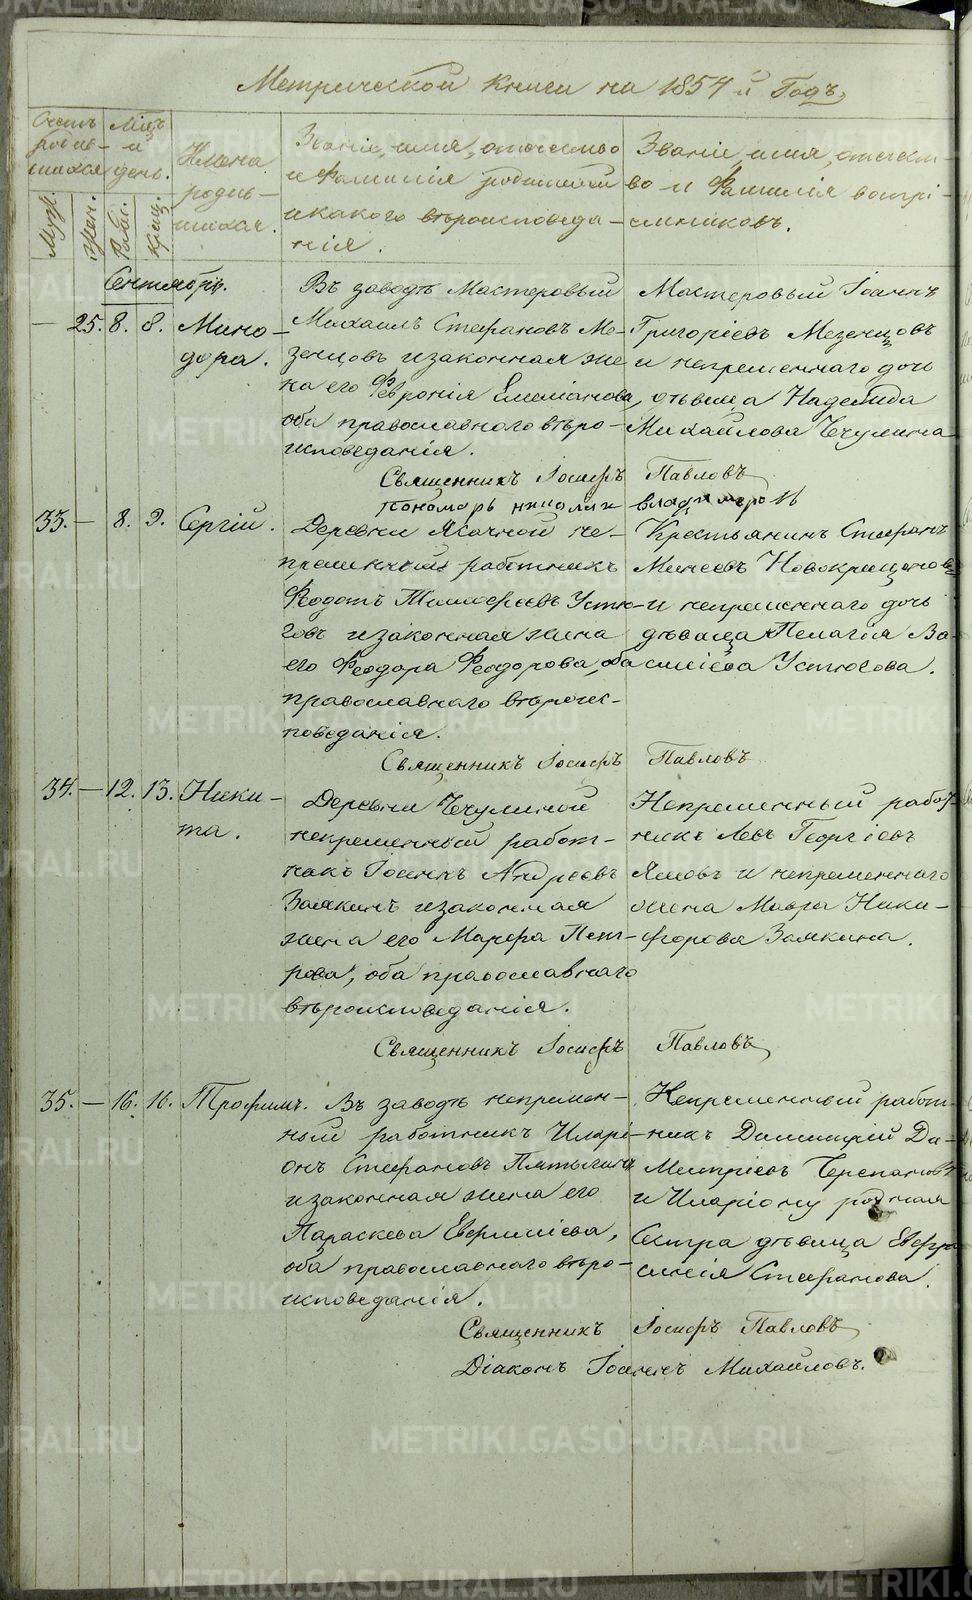 Метрической книги на 1854й Годъ,
Счетъ родив-шихся
Мѣц. и день.
Имена родив-шихся.
Званіе, имя, отечество
и Фамилія родителей
и какого вѣроисповеда-
нія.
Званіе, имя, отечест-
во и Фамилія воспрі-
емниковъ.
Муж. Жен. Рожд. Крещ.
Сентябрь.
— 25. 8. 8. Мино-
дора.
Въ заводѣ Мастеровый
Михаилъ Стефановъ Ме-
зенцовъ и законная же-
на его Февронія Емелianова,
оба православнаго вѣро-
исповеданія.
Мастеровый Іоаннъ
Григоріевъ Мезенцовъ
и непременнаго дочь
девица Надежда
Михайлова Чечулина
Священникъ Іосифъ Павловъ
пономарь николай владимеров
33. — 8. 9. Сергій.
Деревни Ясачной не-
пременный работникъ
Феодотъ Тимофеевъ Устю-
говъ и законная жена
его Феодора Феодорова, оба
православнаго вѣроис-
поведанія.
Крестьянинъ Стефанъ
Минеевъ Новокрещенов
и непременнаго дочь
дѣвица Пелагія Ва-
силіева Устюгова.
Священникъ Іосифъ Павловъ
34. — 12. 13. Ники-
та.
Деревни Чечулиной
непременный работ-
никъ Іоаннъ Андреевъ
Заякинъ и законная
жена его Марфа Пет-
рова, оба православнаго
вѣроисповеданія.
Непременный работ-
никъ Левъ Георгіевъ
Ямовъ и непременнаго
жена Мавра Ники-
форова Заякина.
Священникъ Іосифъ Павловъ
35. — 16. 16. Трофимъ.
Въ заводѣ непремен-
ный работникъ Иларі-
онъ Стефановъ Пятыгинъ
и законная жена его
Параскева Евфиміева,
оба православнаго вѣро-
исповеданія.
Непременный работ-
никъ Димитрій Ди-
митріевъ Черепановъ
и Иларіону родная
Сестра дѣвица Евфро-
синія Стефанова.
Священникъ Іосифъ Павловъ
Діаконъ Іоаннъ Михайловъ.
METRIKI.GASO-URAL.RU